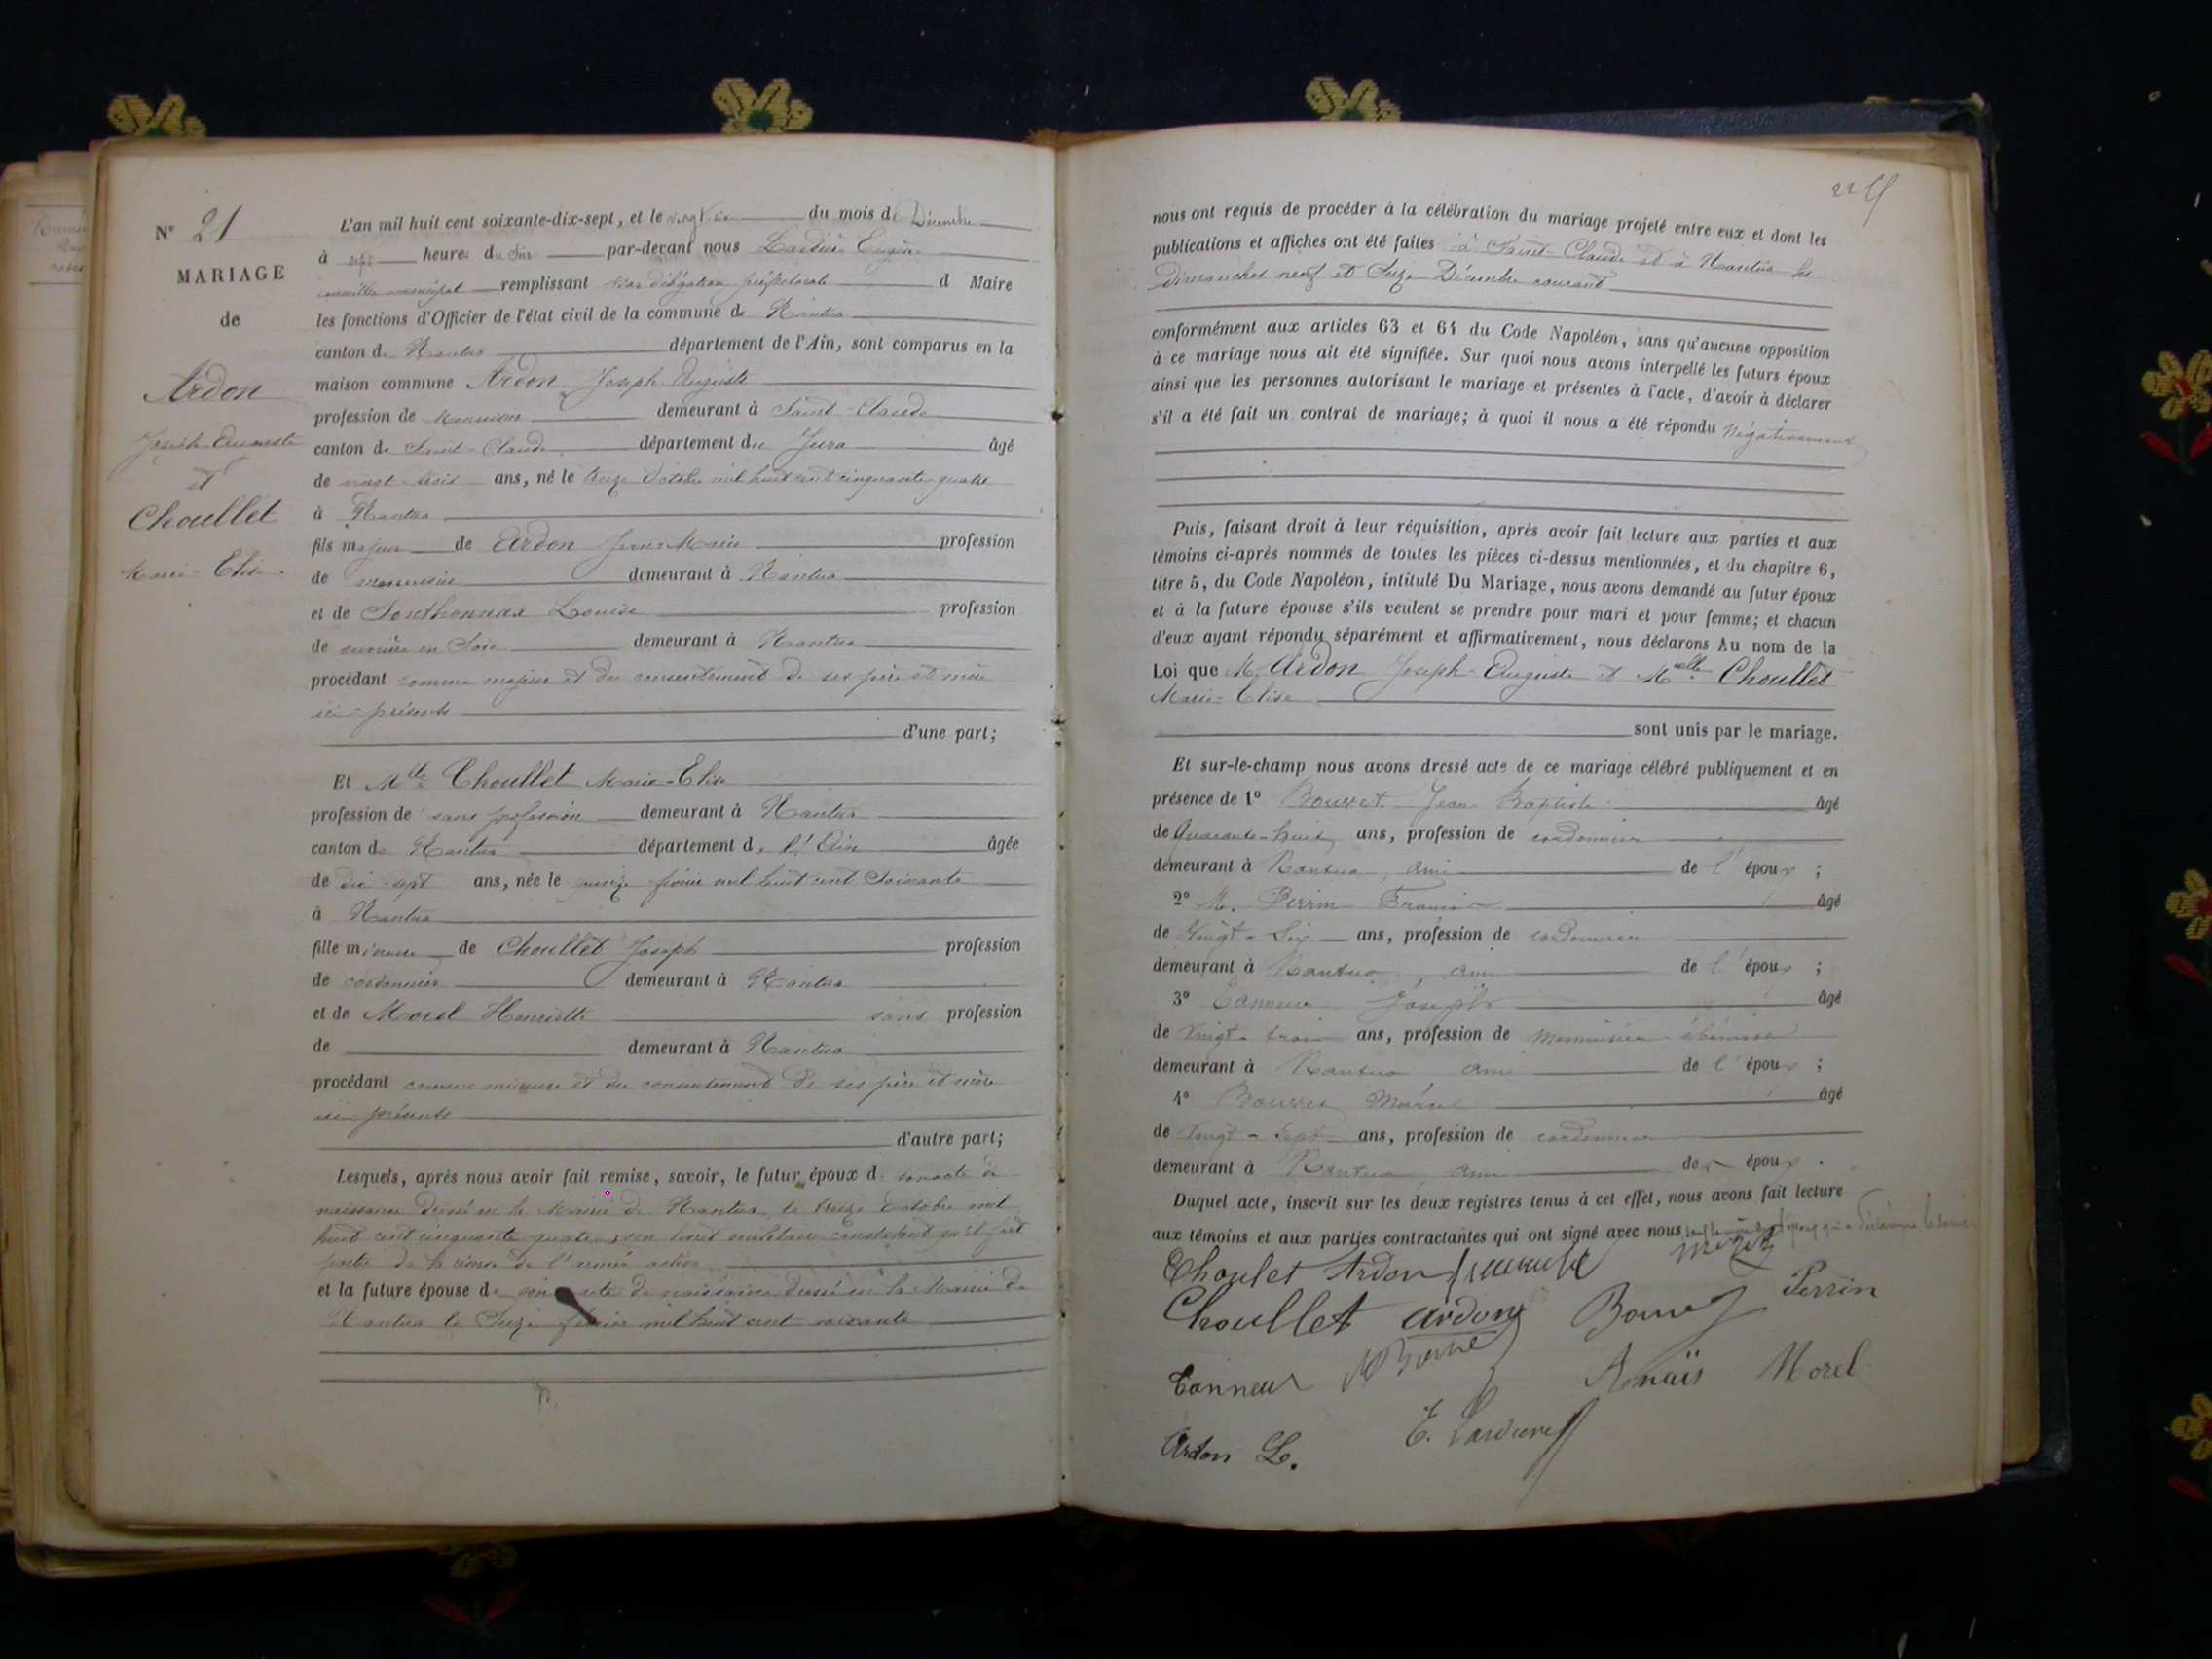 N° 21
MARIAGE
de
Ardon
Joseph-Auguste
et
Choullet
Marie-Elise
L'an mil huit cent soixante-dix-sept, et le vingt six du mois de Décembre
à sept heures du soir par-devant nous Lardier Eugène
conseiller municipal remplissant par délégation préfectorale d Maire
les fonctions d'Officier de l'état civil de la commune de Nantua
canton de Nantua département de l'Ain, sont comparus en la
maison commune Ardon Joseph Auguste
profession de Menuisier demeurant à Saint-Claude
canton de Saint-Claude département du Jura âgé
de vingt-trois ans, né le treize Octobre mil huit cent cinquante-quatre
à Nantua
fils majeur de Ardon Jean-Marie profession
de menuisier demeurant à Nantua
et de Sonthonnax Louise profession
de ouvrière en Soie demeurant à Nantua
procédant comme majeur et du consentement de ses père et mère
ici présents
d'une part;
Et Mlle Choullet Marie-Elise
profession de sans profession demeurant à Nantua
canton de Nantua département de l'Ain âgée
de dix-sept ans, née le février mil huit cent soixante
à Nantua
fille mineure de Choullet Joseph profession
de cordonnier demeurant à Nantua
et de Morel Henriette sans profession
de demeurant à Nantua
procédant comme mineure et du consentement de ses père et mère
ici présents
d'autre part;
Lesquels, après nous avoir fait remise, savoir, le futur époux de son acte de
naissance dressé en la Mairie de Nantua le treize Octobre mil
huit cent cinquante quatre, son livret militaire constatant qu'il fait
partie de la réserve de l'armée active
et la future épouse de son acte de naissance dressé en la Mairie de
Nantua le Seize février mil huit cent soixante
nous ont requis de procéder à la célébration du mariage projeté entre eux et dont les
publications et affiches ont été faites à Saint-Claude et à Nantua les
Dimanches neuf et Seize Décembre courant
conformément aux articles 63 et 64 du Code Napoléon, sans qu'aucune opposition
à ce mariage nous ait été signifiée. Sur quoi nous avons interpellé les futurs époux
ainsi que les personnes autorisant le mariage et présentes à l'acte, d'avoir à déclarer
s'il a été fait un contrat de mariage; à quoi il nous a été répondu Négativement
Puis, faisant droit à leur réquisition, après avoir fait lecture aux parties et aux
témoins ci-après nommés de toutes les pièces ci-dessus mentionnées, et du chapitre 6,
titre 5, du Code Napoléon, intitulé Du Mariage, nous avons demandé au futur époux
et à la future épouse s'ils veulent se prendre pour mari et pour femme; et chacun
d'eux ayant répondu séparément et affirmativement, nous déclarons Au nom de la
Loi que M. Ardon Joseph-Auguste et Melle Choullet
Marie-Elise
sont unis par le mariage.
Et sur-le-champ nous avons dressé acte de ce mariage célébré publiquement et en
présence de 1° Bouvret Jean Baptiste âgé
de Quarante-huit ans, profession de cordonnier
demeurant à Nantua, ami de l'époux;
2° M. Perrin Francis âgé
de Vingt-Six ans, profession de cordonnier
demeurant à Nantua, ami de l'époux;
3° Tanneur Joseph âgé
de Vingt-trois ans, profession de menuisier ébéniste
demeurant à Nantua, ami de l'époux;
4° Bouvret âgé
de Vingt-Sept ans, profession de cordonnier
demeurant à Nantua, ami de époux.
Duquel acte, inscrit sur les deux registres tenus à cet effet, nous avons fait lecture
aux témoins et aux parties contractantes qui ont signé avec nous
Choulet Ardon
Choullet Ardon Perrin
Tanneur Morel
Ardon L. E. Lardier